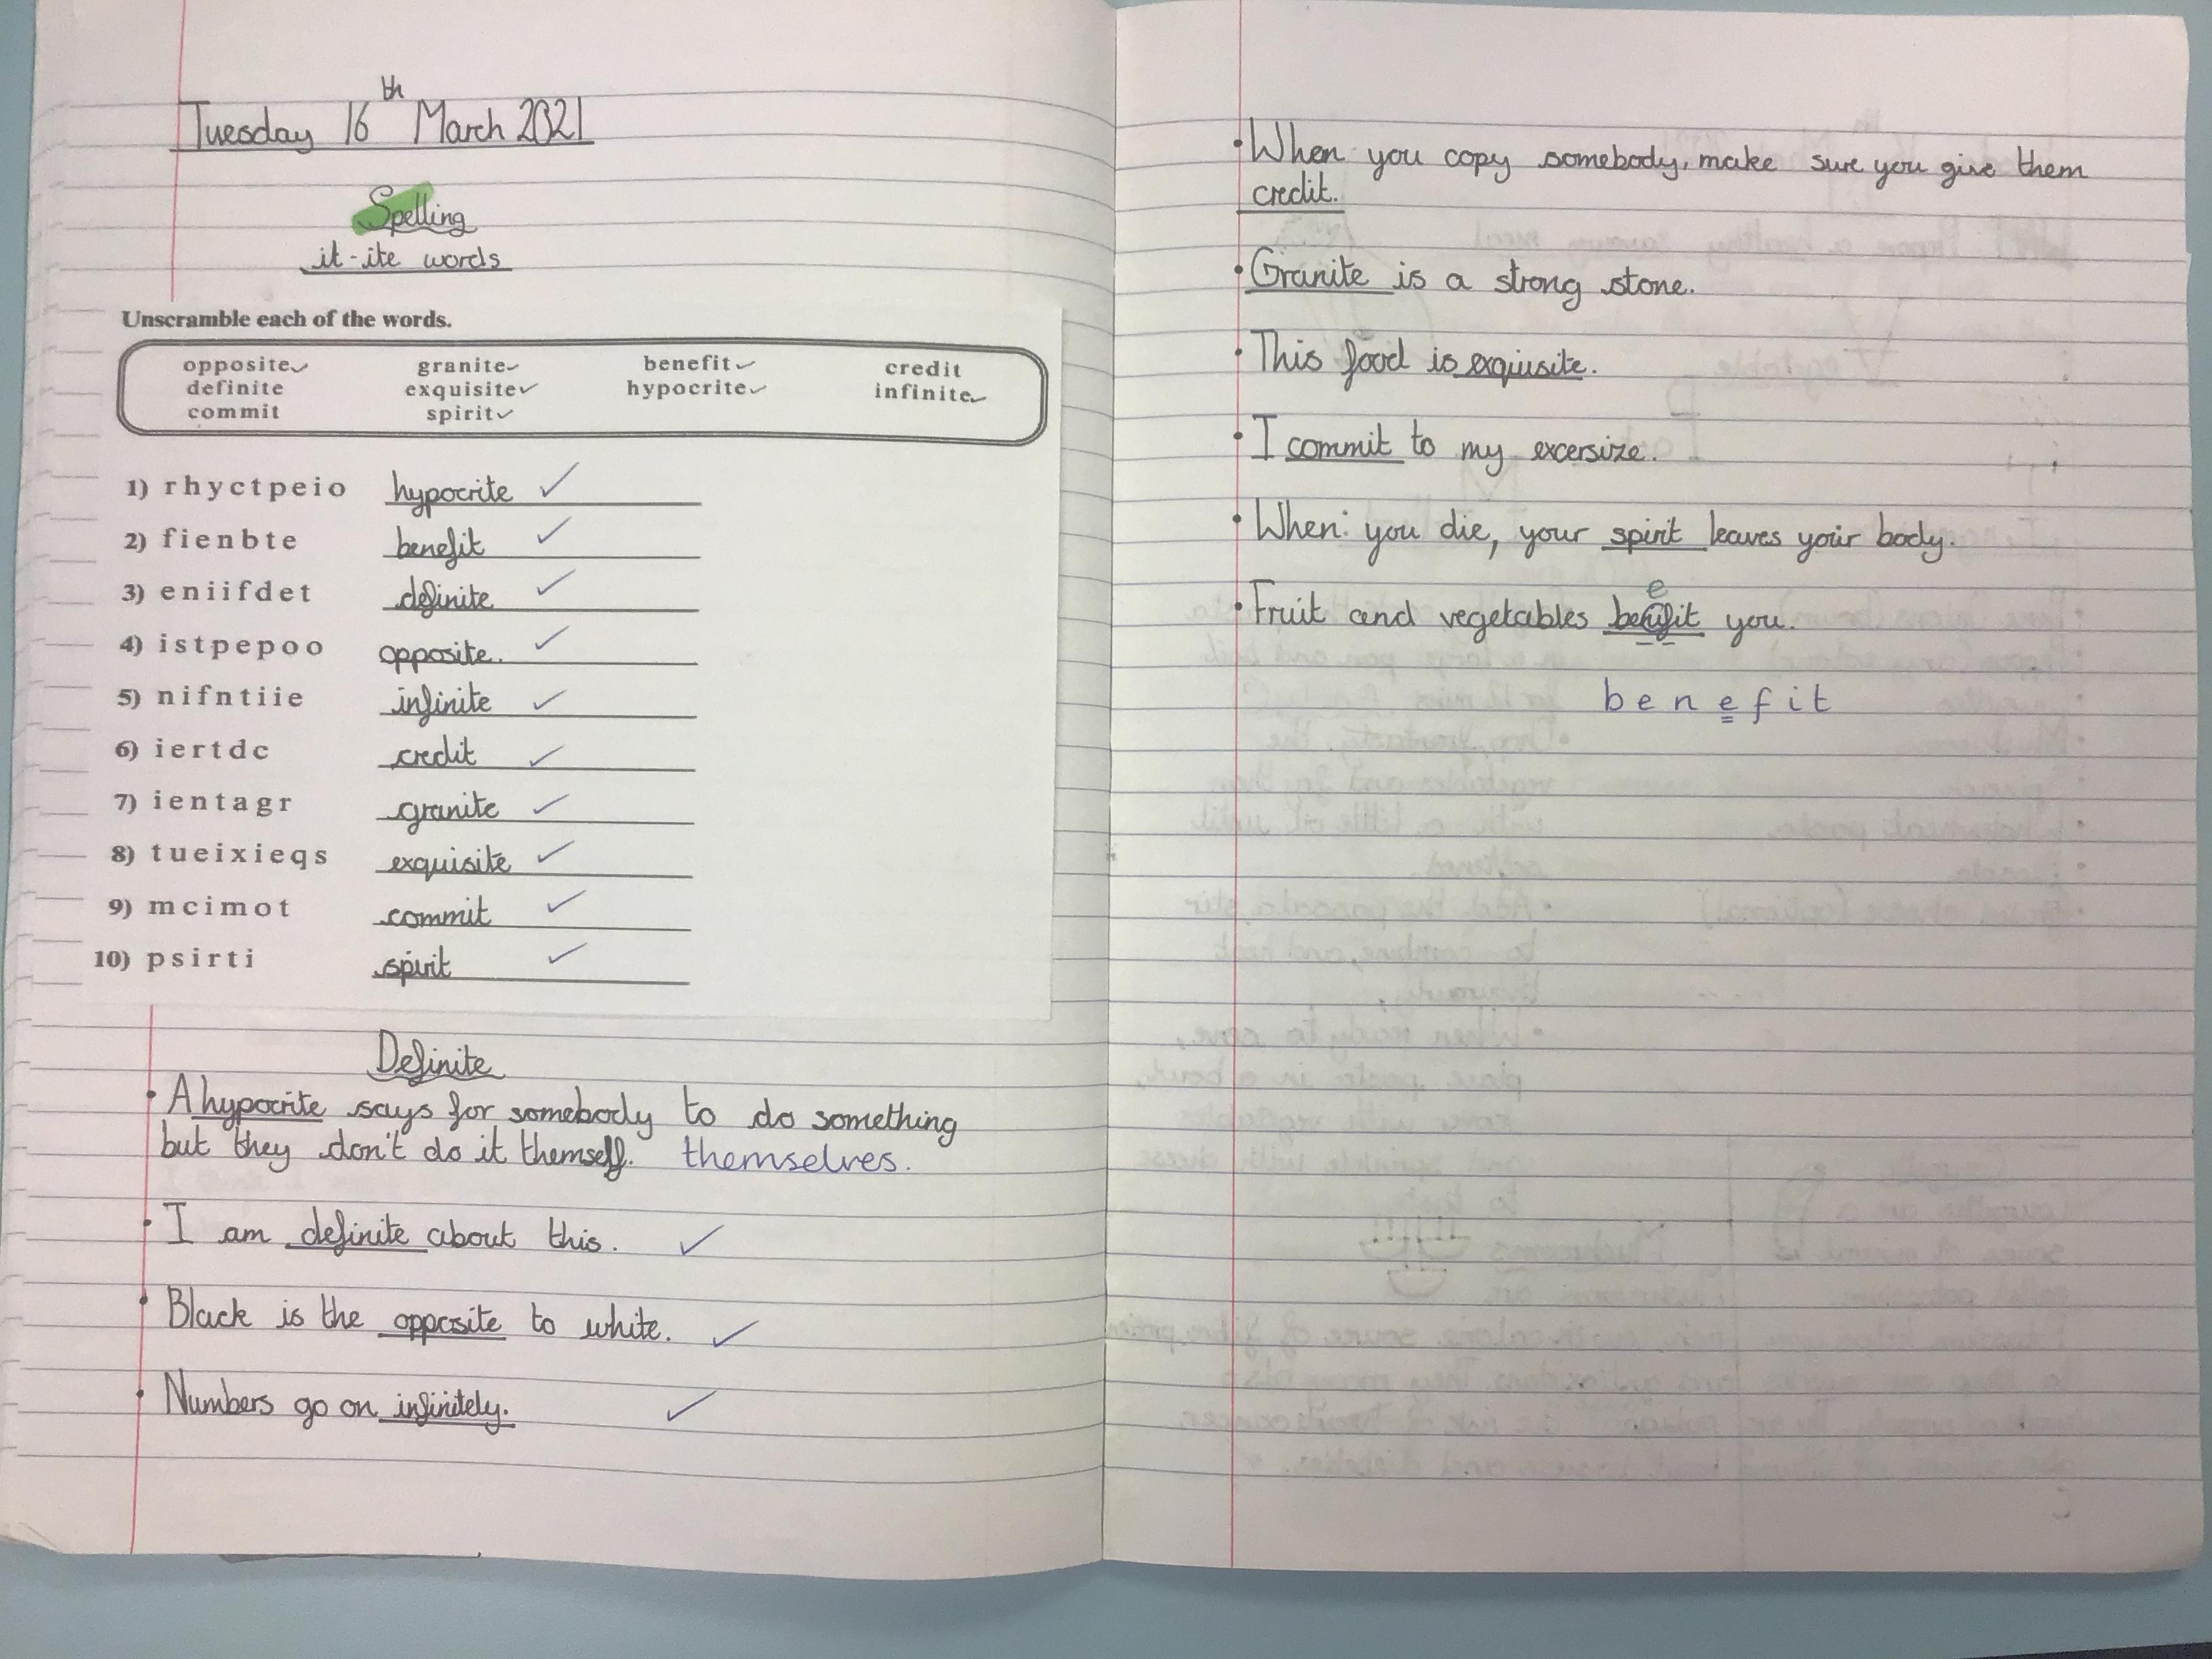 Tuesday 16th March 2021
Spelling
it-ite words
Unscramble each of the words.
opposite granite benefit credit
definite exquisite hypocrite infinite
commit spirit
1) rhyctpeio hypocrite
2) fienbte benefit
3) eniifdet definite
4) istpepoo opposite.
5) nifntiie infinite
6) iertdc credit
7) ientagr granite
8) tueixieqs exquisite
9) mcimot commit
10) psirti spirit
Definite
• A hypocrite says for somebody to do something
but they don't do it themself. themselves.
• I am definite about this.
• Black is the opposite to white.
• Numbers go on infinitely.
• When you copy somebody, make sure you give them
credit.
• Granite is a strong stone.
• This food is exquisite.
• I commit to my excersize.
• When you die, your spirit leaves your body.
e
• Fruit and vegetables benifit you.
benefit